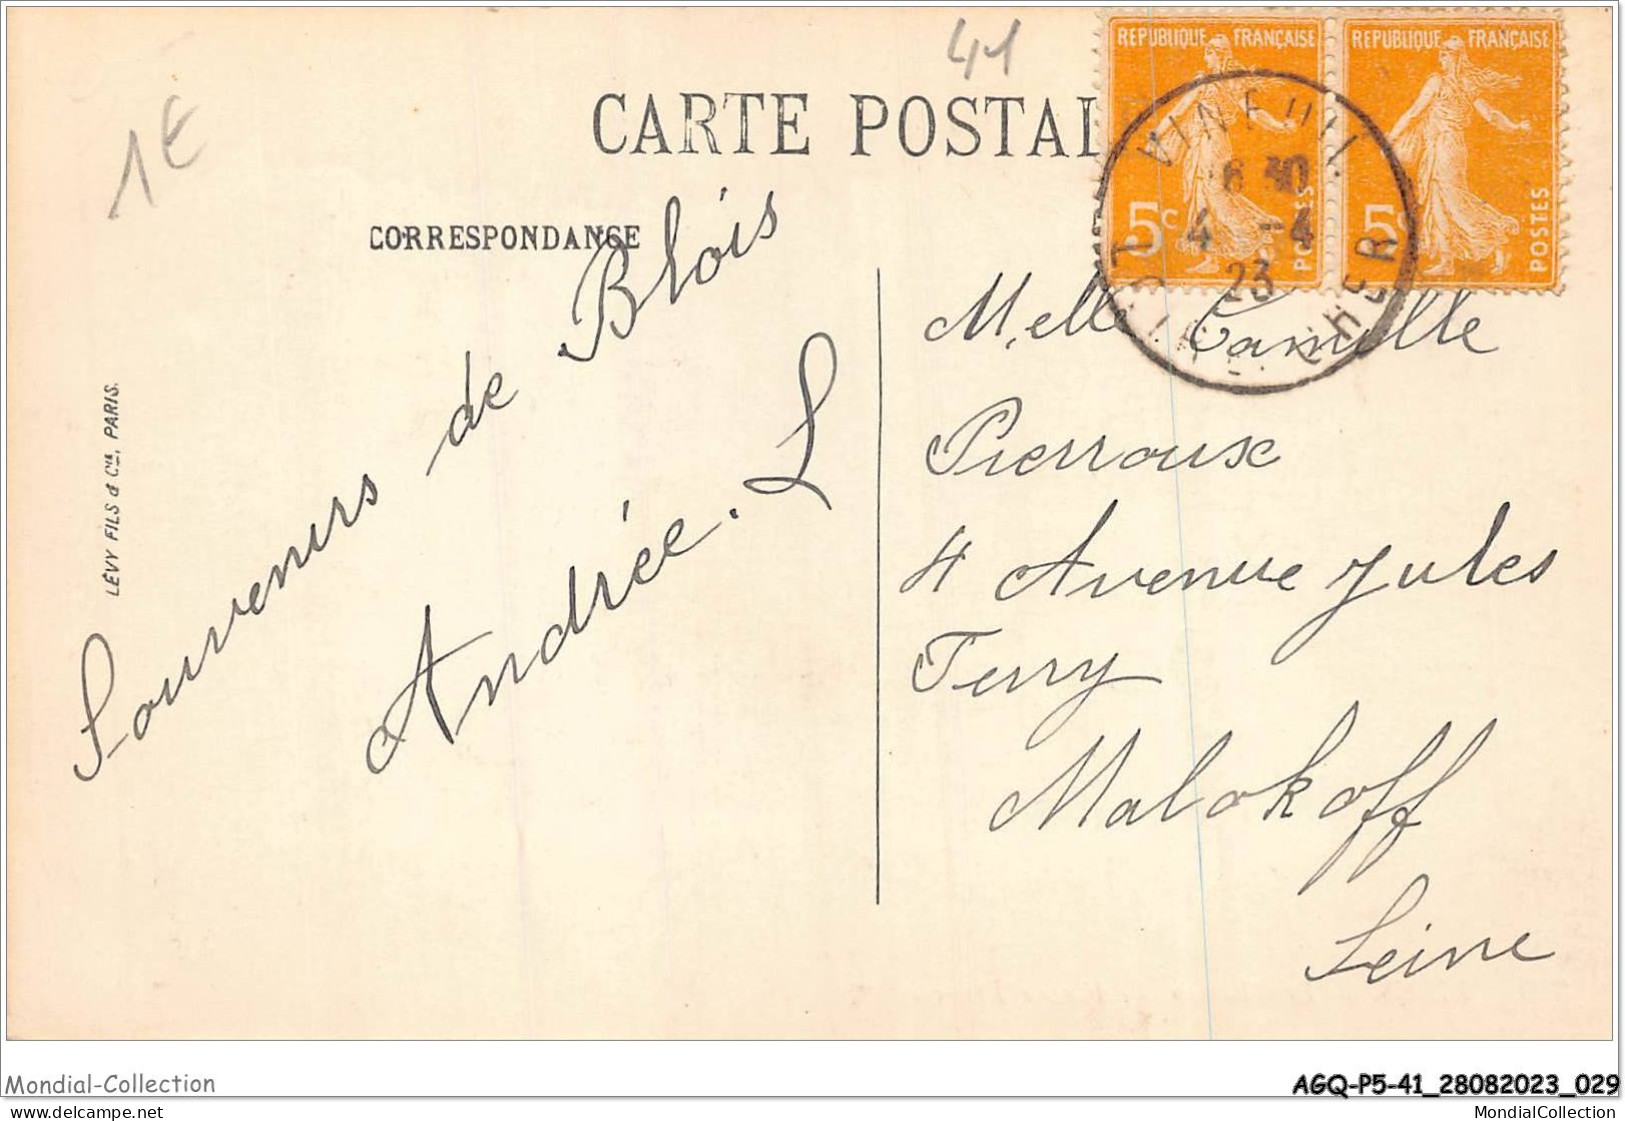 41
1E
CARTE POSTAL
CORRESPONDANCE
REPUBLIQUE FRANÇAISE
5c
POSTES
REPUBLIQUE FRANÇAISE
5c
POSTES
VINEUIL
6 30
4 -4
23
LOIR ET CHER
Souvenirs de Blois
Andrée. L
Melle Camille
Pierroux
4 Avenue Jules
Ferry
Malakoff
Seine
LÉVY FILS & Cie, PARIS.
Mondial-Collection
AGQ-P5-41_28082023_029
MondialCollection
MondialCollection